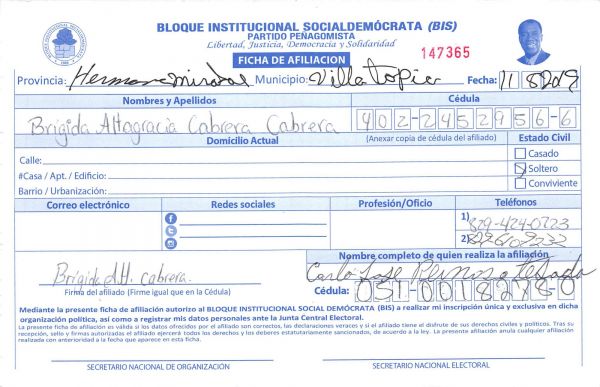 BLOQUE INSTITUCIONAL SOCIALDEMÓCRATA (BIS)
PARTIDO PEÑAGOMISTA
Libertad, Justicia, Democracia y Solidaridad
FICHA DE AFILIACION
147365
Provincia: Hermanas Mirabal Municipio: Villa Tapia Fecha: 11 8 2019
Nombres y Apellidos Cédula
Brigida Altagracia Cabrera Cabrera 402-2452956-6
Domicilio Actual (Anexar copia de cédula del afiliado) Estado Civil
Calle: Casado
#Casa / Apt. / Edificio: Soltero
Barrio / Urbanización: Conviviente
Correo electrónico Redes sociales Profesión/Oficio Teléfonos
1) 829-424-0723
2)
Nombre completo de quien realiza la afiliación
Brigida Alt. Cabrera. Carlos Jose Reinoso
Firma del afiliado (Firme igual que en la Cédula) Cédula: 051-0018278-0
Mediante la presente ficha de afiliación autorizo al BLOQUE INSTITUCIONAL SOCIAL DEMÓCRATA (BIS) a realizar mi inscripción única y exclusiva en dicha
organización política, así como a registrar mis datos personales ante la Junta Central Electoral.
La presente ficha de afiliación es válida si los datos ofrecidos por el afiliado son correctos, las declaraciones veraces y si el afiliado tiene el disfrute de sus derechos civiles y políticos. Tras su
recepción, sello y firmas autorizadas el afiliado ejercerá todos los derechos y los deberes estatutariamente sancionados, de acuerdo a la ley. La presente afiliación anula cualquier afiliación
realizada con anterioridad a la fecha que aparece en esta ficha.
SECRETARIO NACIONAL DE ORGANIZACIÓN SECRETARIO NACIONAL ELECTORAL